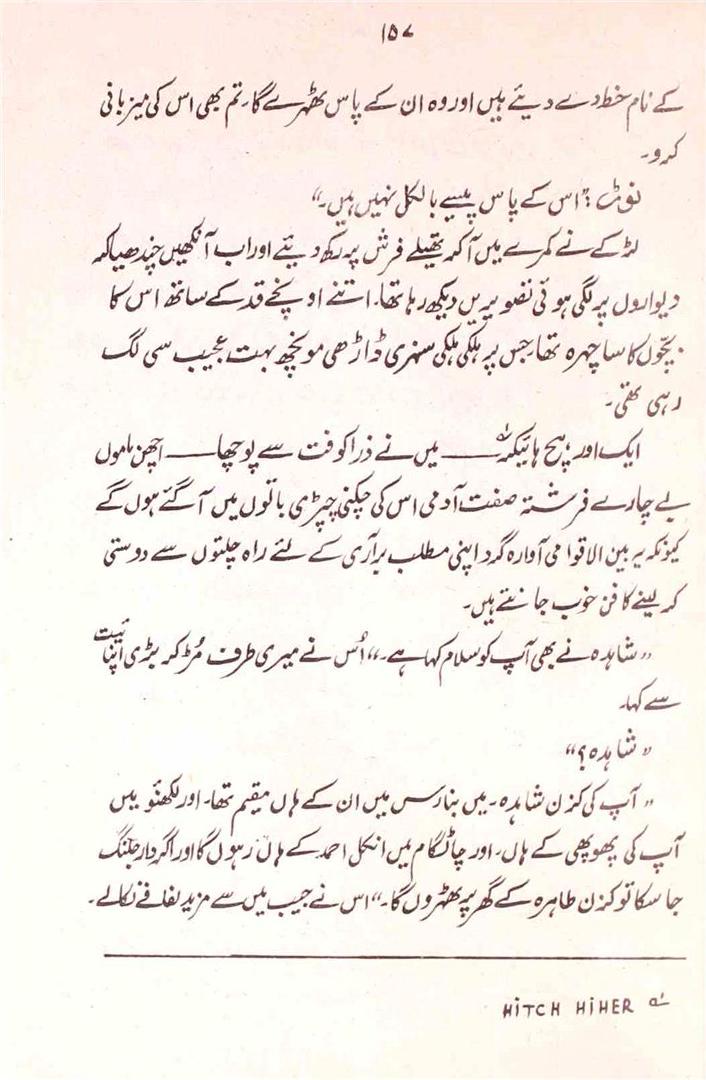 ۱۵۷
کے نام خط دے دیئے ہیں اور وہ ان کے پاس ٹھہرے گا۔ تم بھی اس کی میزبانی
کرو۔
نوٹ:۔ "اس کے پاس پیسے بالکل نہیں ہیں۔"
لڑکے نے کمرے میں آکر تھیلے فرش پر رکھ دیئے اور اب آنکھیں چندھیا کر
دیواروں پر لگی ہوئی تصویریں دیکھ رہا تھا۔ اتنے اونچے قد کے ساتھ اس کا
بچوں کا سا چہرہ تھا۔ جس پر ہلکی ہلکی سنہری داڑھی مونچھ بہت عجیب سی لگ
رہی تھی۔
ایک اور ہچ ہائیکر؂۱ ــــ میں نے ذرا کوفت سے پوچھا ــــ اچھن ماموں
بے چارے فرشتہ صفت آدمی اس کی چکنی چپڑی باتوں میں آگئے ہوں گے
کیونکہ یہ بین الاقوامی آوارہ گرد اپنی مطلب برآری کے لئے راہ چلتوں سے دوستی
کر لینے کا فن خوب جانتے ہیں۔
"شاہدہ نے بھی آپ کو سلام کہا ہے۔" اُس نے میری طرف مُڑ کر بڑی اپنائیت
سے کہا۔
"شاہدہ؟"
"آپ کی کزن شاہدہ۔ میں بنارس میں ان کے ہاں مقیم تھا۔ اور لکھنؤ میں
آپ کی پھوپھی کے ہاں۔ اور چاٹگام میں انکل احمد کے ہاں رہوں گا اور اگر دارجلنگ
جا سکا تو کزن طاہرہ کے گھر پر ٹھہروں گا۔" اس نے جیب میں سے مزید لفافے نکالے۔
؂۱ HITCH HIHER